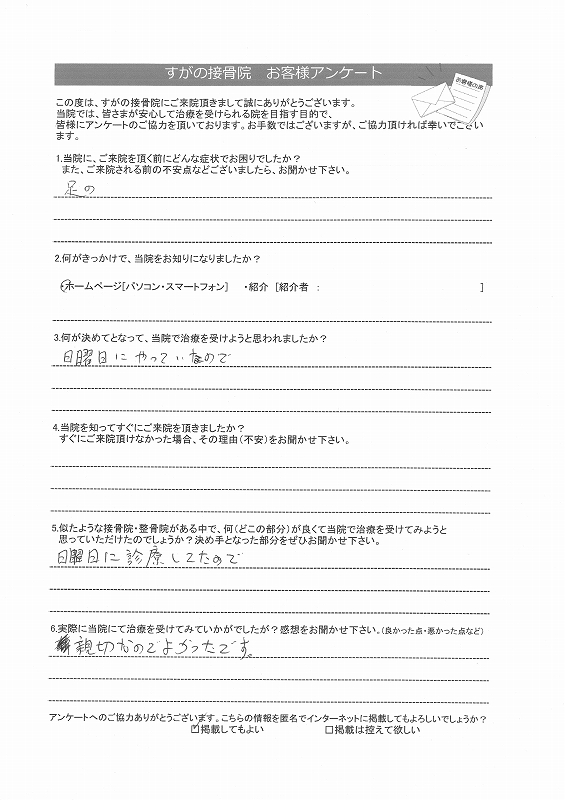 すがの接骨院　お客様アンケート
お客様の声
この度は、すがの接骨院にご来院頂きまして誠にありがとうございます。
当院では、皆さまが安心して治療を受けられる院を目指す目的で、
皆様にアンケートのご協力を頂いております。お手数ではございますが、ご協力頂ければ幸いでござい
ます。
1.当院に、ご来院を頂く前にどんな症状でお困りでしたか？
また、ご来院される前の不安点などございましたら、お聞かせ下さい。
足の
2.何がきっかけで、当院をお知りになりましたか？
・ホームページ[パソコン・スマートフォン]　・紹介 [紹介者 ： ]
3.何が決めてとなって、当院で治療を受けようと思われましたか？
日曜日にやっていなので
4.当院を知ってすぐにご来院を頂きましたか？
すぐにご来院頂けなかった場合、その理由(不安)をお聞かせ下さい。
5.似たような接骨院・整骨院がある中で、何(どこの部分)が良くて当院で治療を受けてみようと
思っていただけたのでしょうか？決め手となった部分をぜひお聞かせ下さい。
日曜日に診療してたので
6.実際に当院にて治療を受けてみていかがでしたが？感想をお聞かせ下さい。(良かった点・悪かった点など)
親切なのでよかったです。
アンケートへのご協力ありがとうございます。こちらの情報を匿名でインターネットに掲載してもよろしいでしょうか？
☑掲載してもよい　□掲載は控えて欲しい